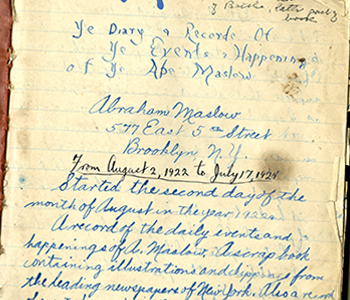 book
Ye Diary & Records Of
Ye Events & Happening
of Ye Abe Maslow
Abraham Maslow
577 East 5th Street
Brooklyn N.Y.
From August 2, 1922 to July 17, 1924
Started the second day of the
month of August in the year 1922
A record of the daily events and
happenings of A. Maslow. A scrap book
containing illustrations and clippings from
the leading newspapers of New York. Also a record